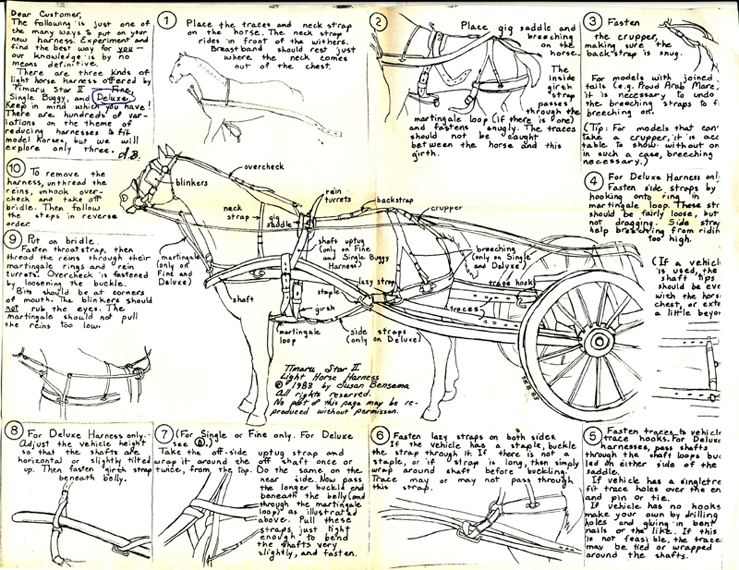 Dear Customer,
The following is just one of
the many ways to put on your
new harness. Experiment and
find the best way for you—
our knowledge is by no
means definitive.
There are three kinds of
light horse harness offered by
Timaru Star II — Fine,
Single Buggy, and Deluxe.
Keep in mind which you have!
There are hundreds of var-
iations on the theme of
reducing harnesses to fit
model horses, but we will
explore only three.
1
Place the traces and neck strap
on the horse. The neck strap
rides in front of the withers.
Breastband should rest just
where the neck comes
out of the chest.
2
Place gig saddle and
breeching
on the
horse.
The
inside
girth
strap
passes
through the
martingale loop (if there is one)
and fastens snugly. The traces
should not be caught
between the horse and this
girth.
3
Fasten
the crupper,
making sure the
back strap is snug.
For models with joined
tails (e.g. Proud Arab Mare)
it is necessary to undo
the breeching straps to
breeching on.
(Tip: For models that can'
take a crupper, it is
table to show without
in such a case, breeching
necessary.)
4
For Deluxe Harness only
Fasten side straps by
hooking onto ring in
martingale loop. These
should be fairly loose, but
not dragging. Side
help breeching from
too high.
(If a vehicle
is used, the
shaft tips
should be
with the horse
chest, or
a little
10
To remove the
harness, unthread the
reins, unhook over-
check and take off
bridle. Then follow
the steps in reverse
order
9
Put on bridle.
Fasten throatstrap, then
thread the reins through their
martingale rings and rein
turrets. Overcheck is fastened
by loosening the buckle.
Bits should be at corners
of mouth. The blinkers should
not rub the eyes. The
martingale should not pull
the reins too low.
overcheck
blinkers
neck
strap
gig
saddle
rein
turrets
backstrap
crupper
martingale
(only on
Fine and
Deluxe)
shaft uptug
(only on Fine
and Single Buggy
Harness)
breeching
(only on Single
and Deluxe)
lazy strap
trace hook
staple
shaft
traces
girth
martingale
loop
side straps
(only on Deluxe)
Timaru Star II
Light Horse Harness
© 1983 by Susan Bensema
All rights reserved.
No part of this page may be re-
produced without permission.
8
For Deluxe Harness only.
Adjust the vehicle height
so that the shafts are
horizontal or slightly tilted
up. Then fasten girth strap
beneath belly.
7
(For Single or Fine only. For Deluxe
see 8.)
Take the off-side uptug strap and
wrap it around the off shaft once or
twice, from the top. Do the same on the
near side. Now pass
the longer buckle end
beneath the belly (and
through the martingale
loop) as illustrated
above. Pull these
straps just tight
enough to bend
the shafts very
slightly, and fasten.
6
Fasten lazy straps on both sides
If the vehicle has a staple, buckle
the strap through it. If there is not a
staple, or if strap is long, then simply
wrap around shaft before buckling.
Trace may or may not pass through
this strap.
5
Fasten traces to vehicle
trace hooks. For Deluxe
harnesses, pass shafts
through the shaft loops
led on either side of the
saddle.
If vehicle has a singletree
fit trace holes over the
and pin or tie.
If vehicle has no hooks
make your own by drilling
holes and gluing in bent
nails or the like. If this
is not feasible, the traces
may be tied or wrapped
around the shafts.